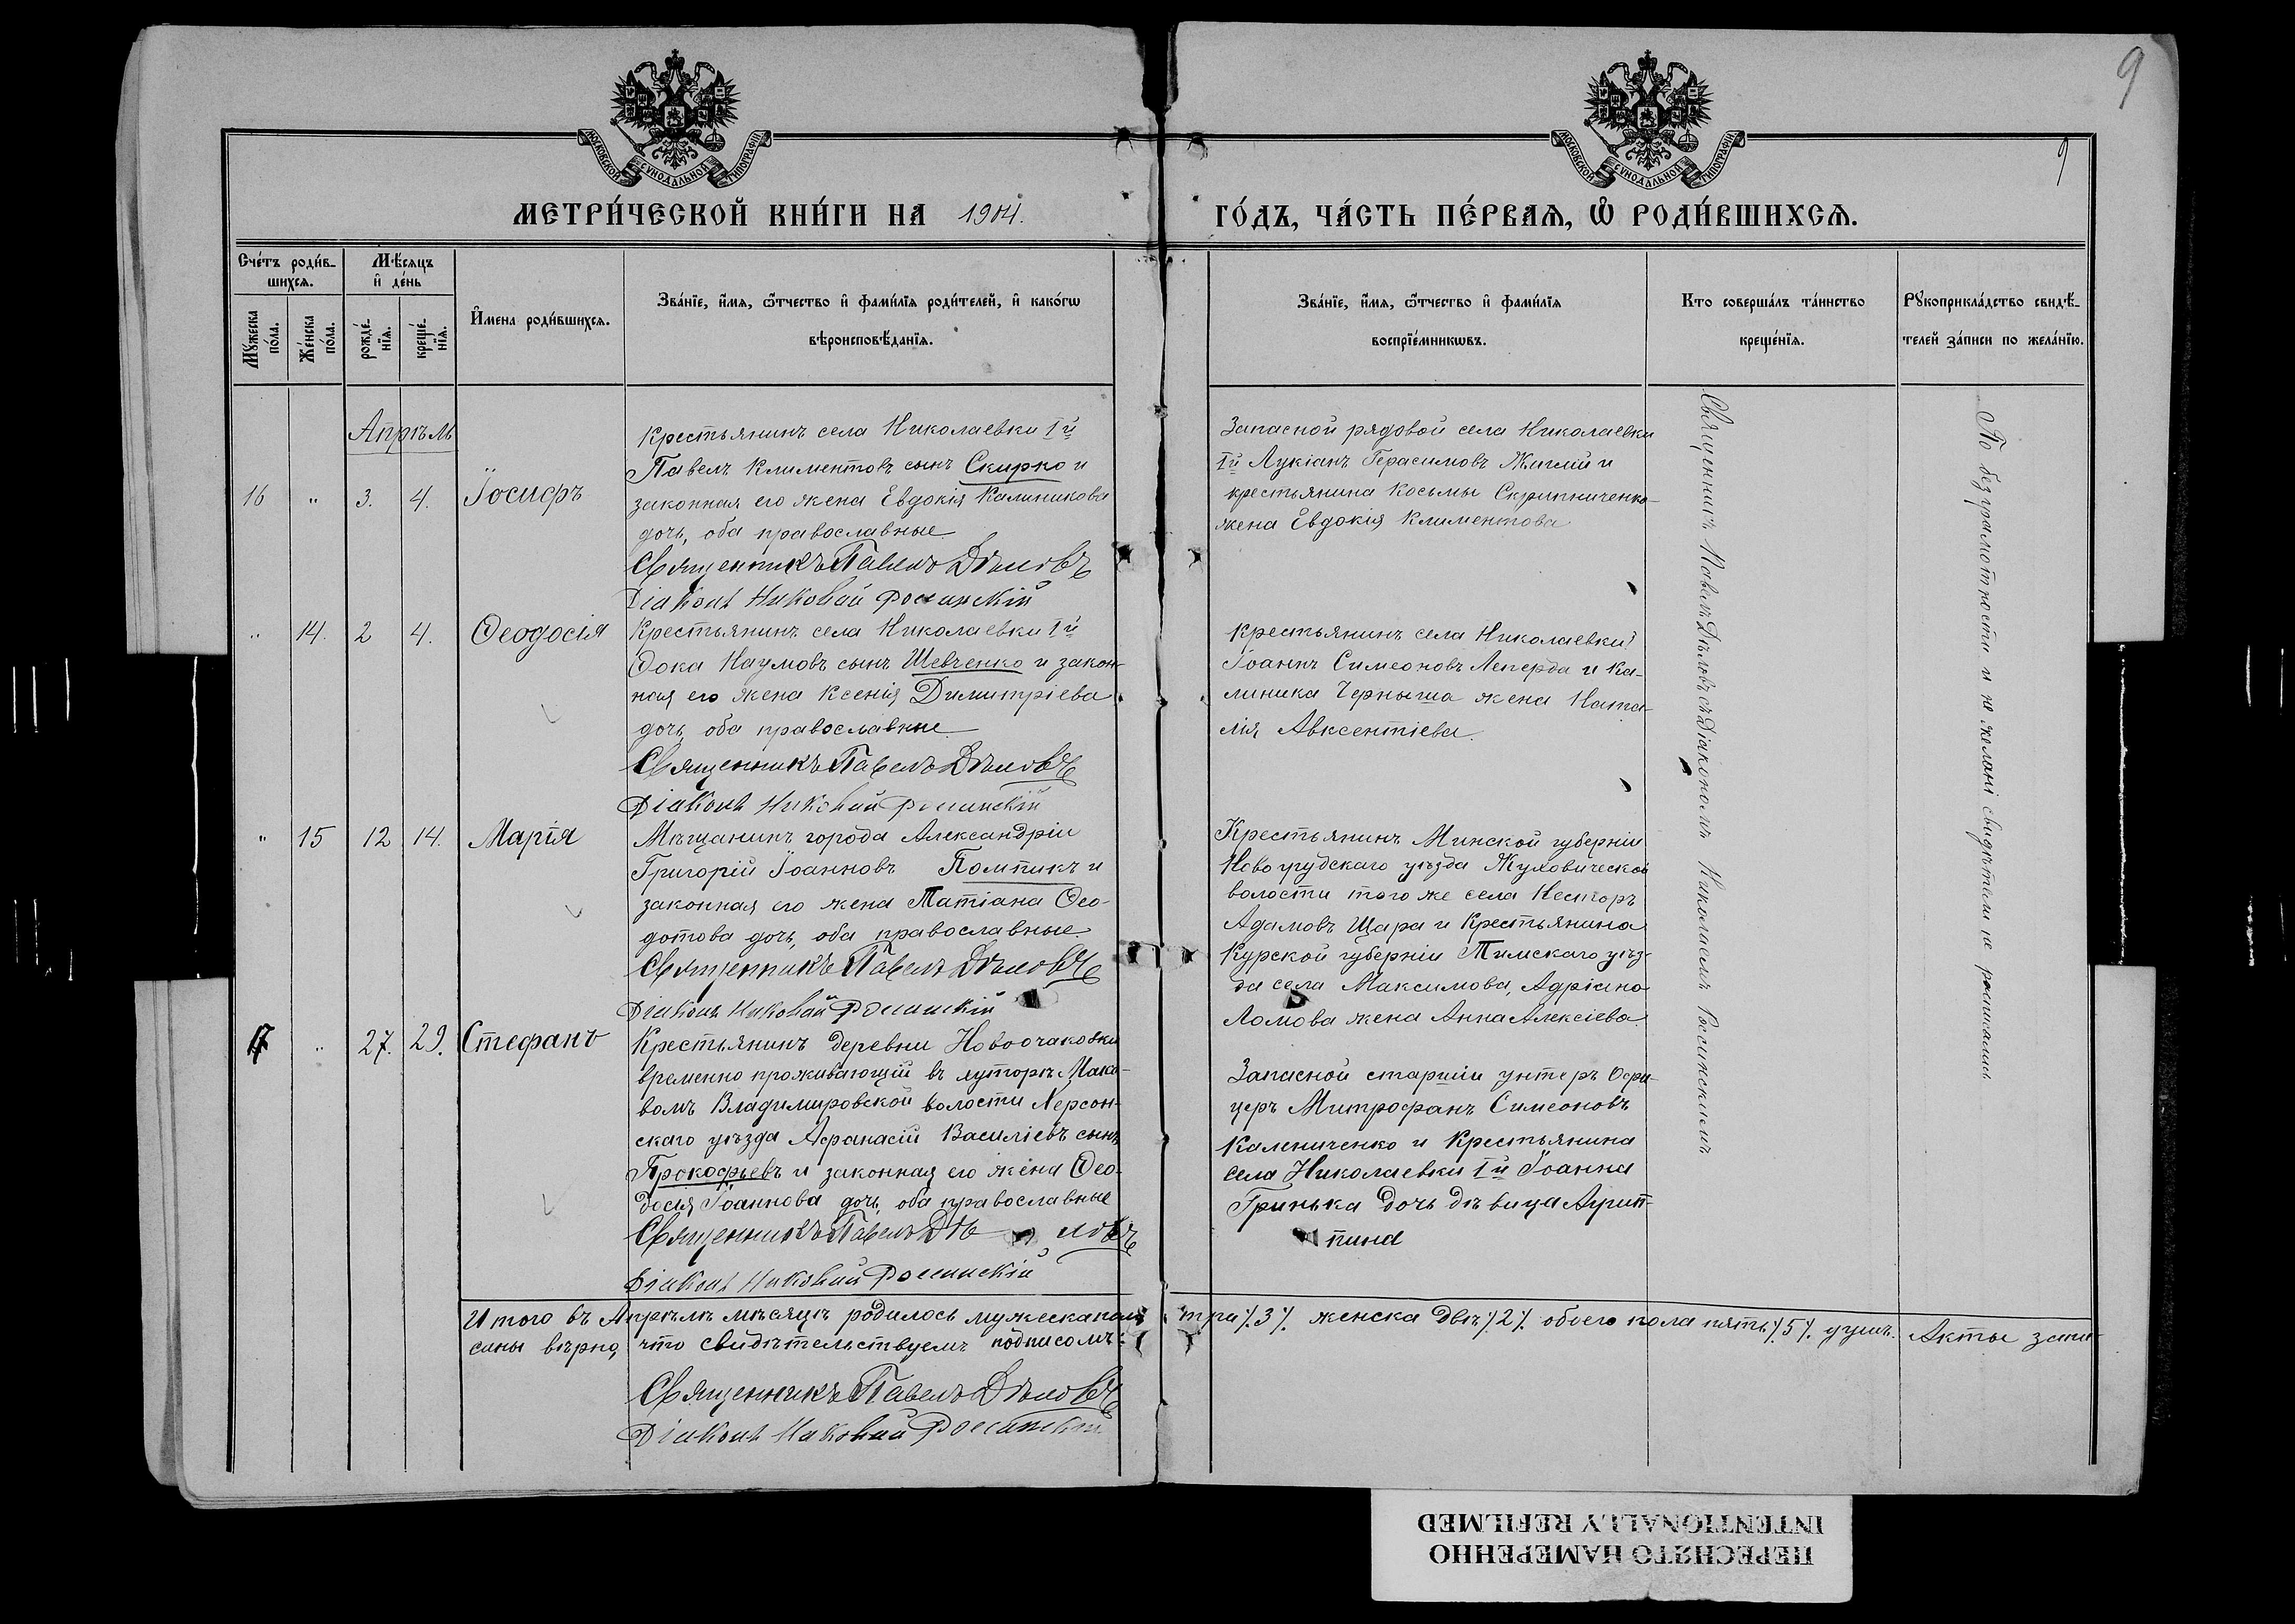 9
9
МОСКОВСКОЙ СѴНОДАЛЬНОЙ ТИПОГРАФІИ
МОСКОВСКОЙ СѴНОДАЛЬНОЙ ТИПОГРАФІИ
МЕТРИ́ЧЕСКОЙ КНИ́ГИ НА 1904. ГО́ДЪ, ЧА́СТЬ ПЕ́РВАѦ, Ѽ РОДИ́ВШИХСѦ.
Сче́тъ роди́в-
шихсѧ.
Мꙋжеска по́ла.
Же́нска по́ла.
Мѣ́сѧцъ
и҆ де́нь
рожде́-
нїѧ.
креще́-
нїѧ.
И҆мена роди́вшихсѧ.
Зва́нїе, и҆́мѧ, ѻ҆́тчество и҆ фами́лїѧ роди́телей, и҆ како́гѡ
вѣроисповѣ́данїѧ.
Зва́нїе, и҆́мѧ, ѻ҆́тчество и҆ фами́лїѧ
воспрїе́мникѡвъ.
Кто соверша́лъ та́инство
креще́нїѧ.
Рꙋкоприкла́дство свидѣ́-
телей за́писи по жела́нїю.
Апрѣль
16 " 3. 4. Іосифъ
Крестьянинъ села Николаевки Iй
Павелъ Климентовъ сынъ Скирко и
законная его жена Евдокія Калиникова
дочь, оба православные
Священникъ Павелъ Дѣловъ
Діаконъ Николай Росинскій
Запасной рядовой села Николаевки
Iй Лукіанъ Герасимовъ Жилій и
крестьянина Косьмы Скрипниченко
жена Евдокія Климентова
" 14. 2 4. Ѳеодосія
Крестьянинъ села Николаевки Iй
Фока Наумовъ сынъ Шевченко и закон-
ная его жена Ксенія Димитріева
дочь, оба православные
Священникъ Павелъ Дѣловъ
Діаконъ Николай Росинскій
Крестьянинъ села Николаевки I
Іоаннъ Симеоновъ Леперда и Ка-
линика Черныша жена Ната-
лія Авксентіева.
" 15 12 14. Марія
Мѣщанинъ города Александріи
Григорій Іоанновъ Помпикъ и
законная его жена Татіана Ѳео-
дотова дочь, оба православные
Священникъ Павелъ Дѣловъ
Діаконъ Николай Росинскій
Крестьянинъ Минской губерніи
Новогрудскаго уѣзда Жуховической
волости того же села Несторъ
Адамовъ Щара и Крестьянина
Курской губерніи Тимскаго уѣз-
да села Максимова, Адріана
Ломова жена Анна Алексіева.
17 " 27. 29. Стефанъ
Крестьянинъ деревни Новоочаковки
временно проживающій въ хуторѣ Мака-
вомъ Владимировской волости Херсон-
скаго уѣзда Афанасій Василіевъ сынъ
Прокофьевъ и законная его жена Ѳео-
досія Іоаннова дочь, оба православные
Священникъ Павелъ Дѣловъ
Діаконъ Николай Росинскій
Запасной старшій унтеръ офи-
церъ Митрофанъ Симеоновъ
Калениченко и Крестьянина
села Николаевки Iй Іоанна
Гринька дочь дѣвица Агрип-
пина
Священникъ Павелъ Дѣловъ съ Діакономъ Николаемъ Росинскимъ
По безграмотности и не желанію свидѣтели не росписались
Итого въ Апрѣлѣ мѣсяцѣ родилось мужеска пола три /.3/. женска двѣ /.2/. обоего пола пять /.5/. душъ. Акты запи-
саны вѣрно, что свидѣтельствуемъ подписомъ:
Священникъ Павелъ Дѣловъ
Діаконъ Николай Росинскій
ПЕРЕСНЯТО НАМЕРЕННО
INTENTIONALLY REFILMED